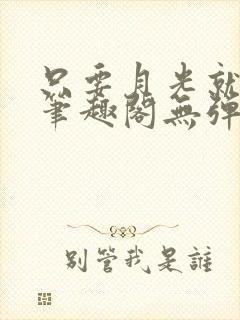 只要月光就
筆趣閣無彈
別管我是誰